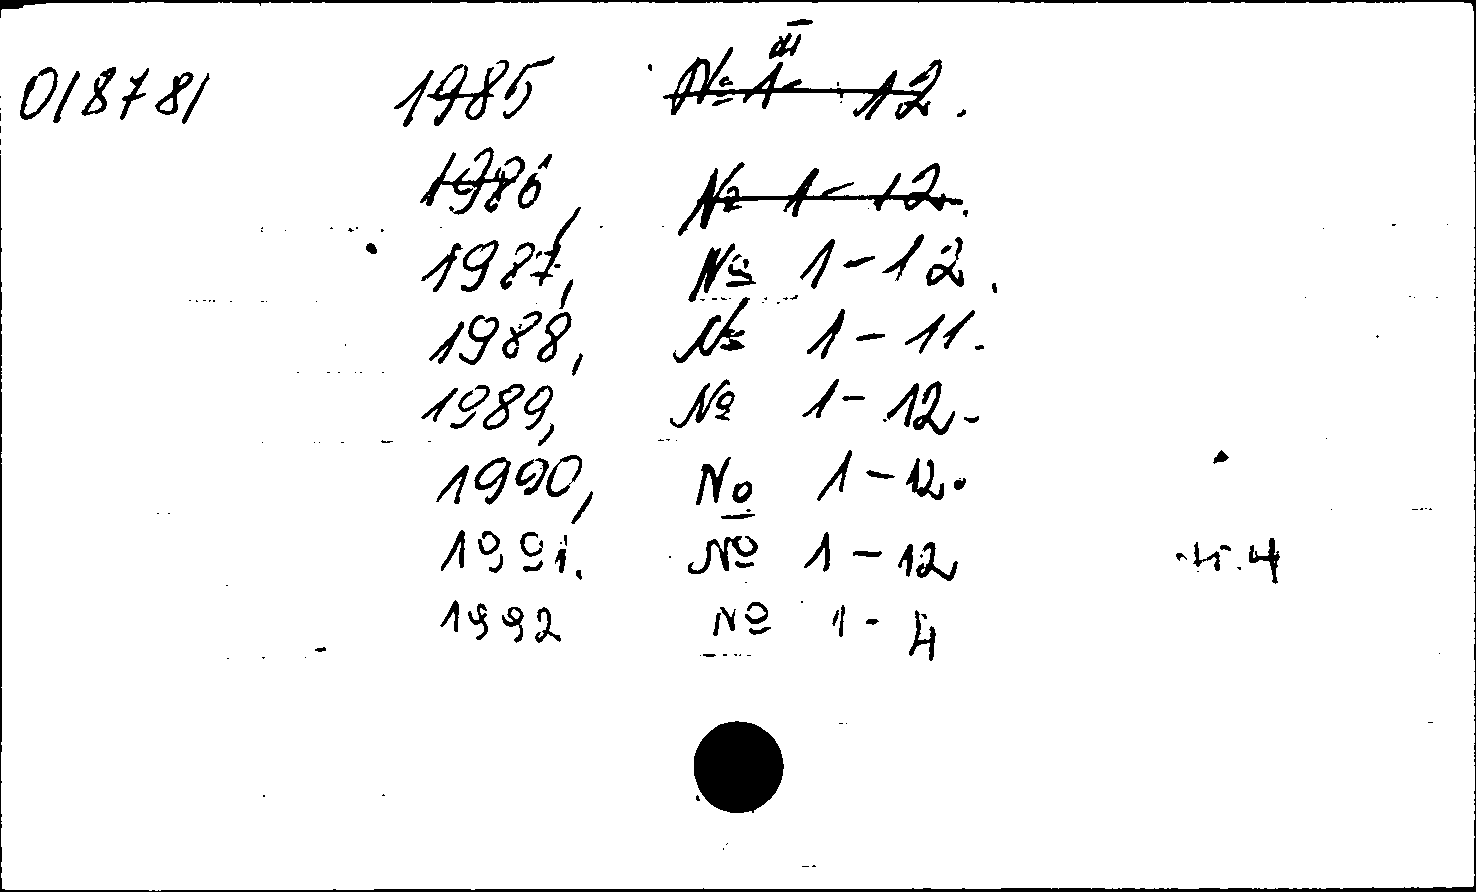 018781 1985 № 1 - 12.
1986, № 1 - 12.
1987, № 1 - 12.
1988, № 1 - 11.
1989, № 1 - 12.
1990, № 1 - 12.
1991. № 1 - 12
1992 № 1 - 4